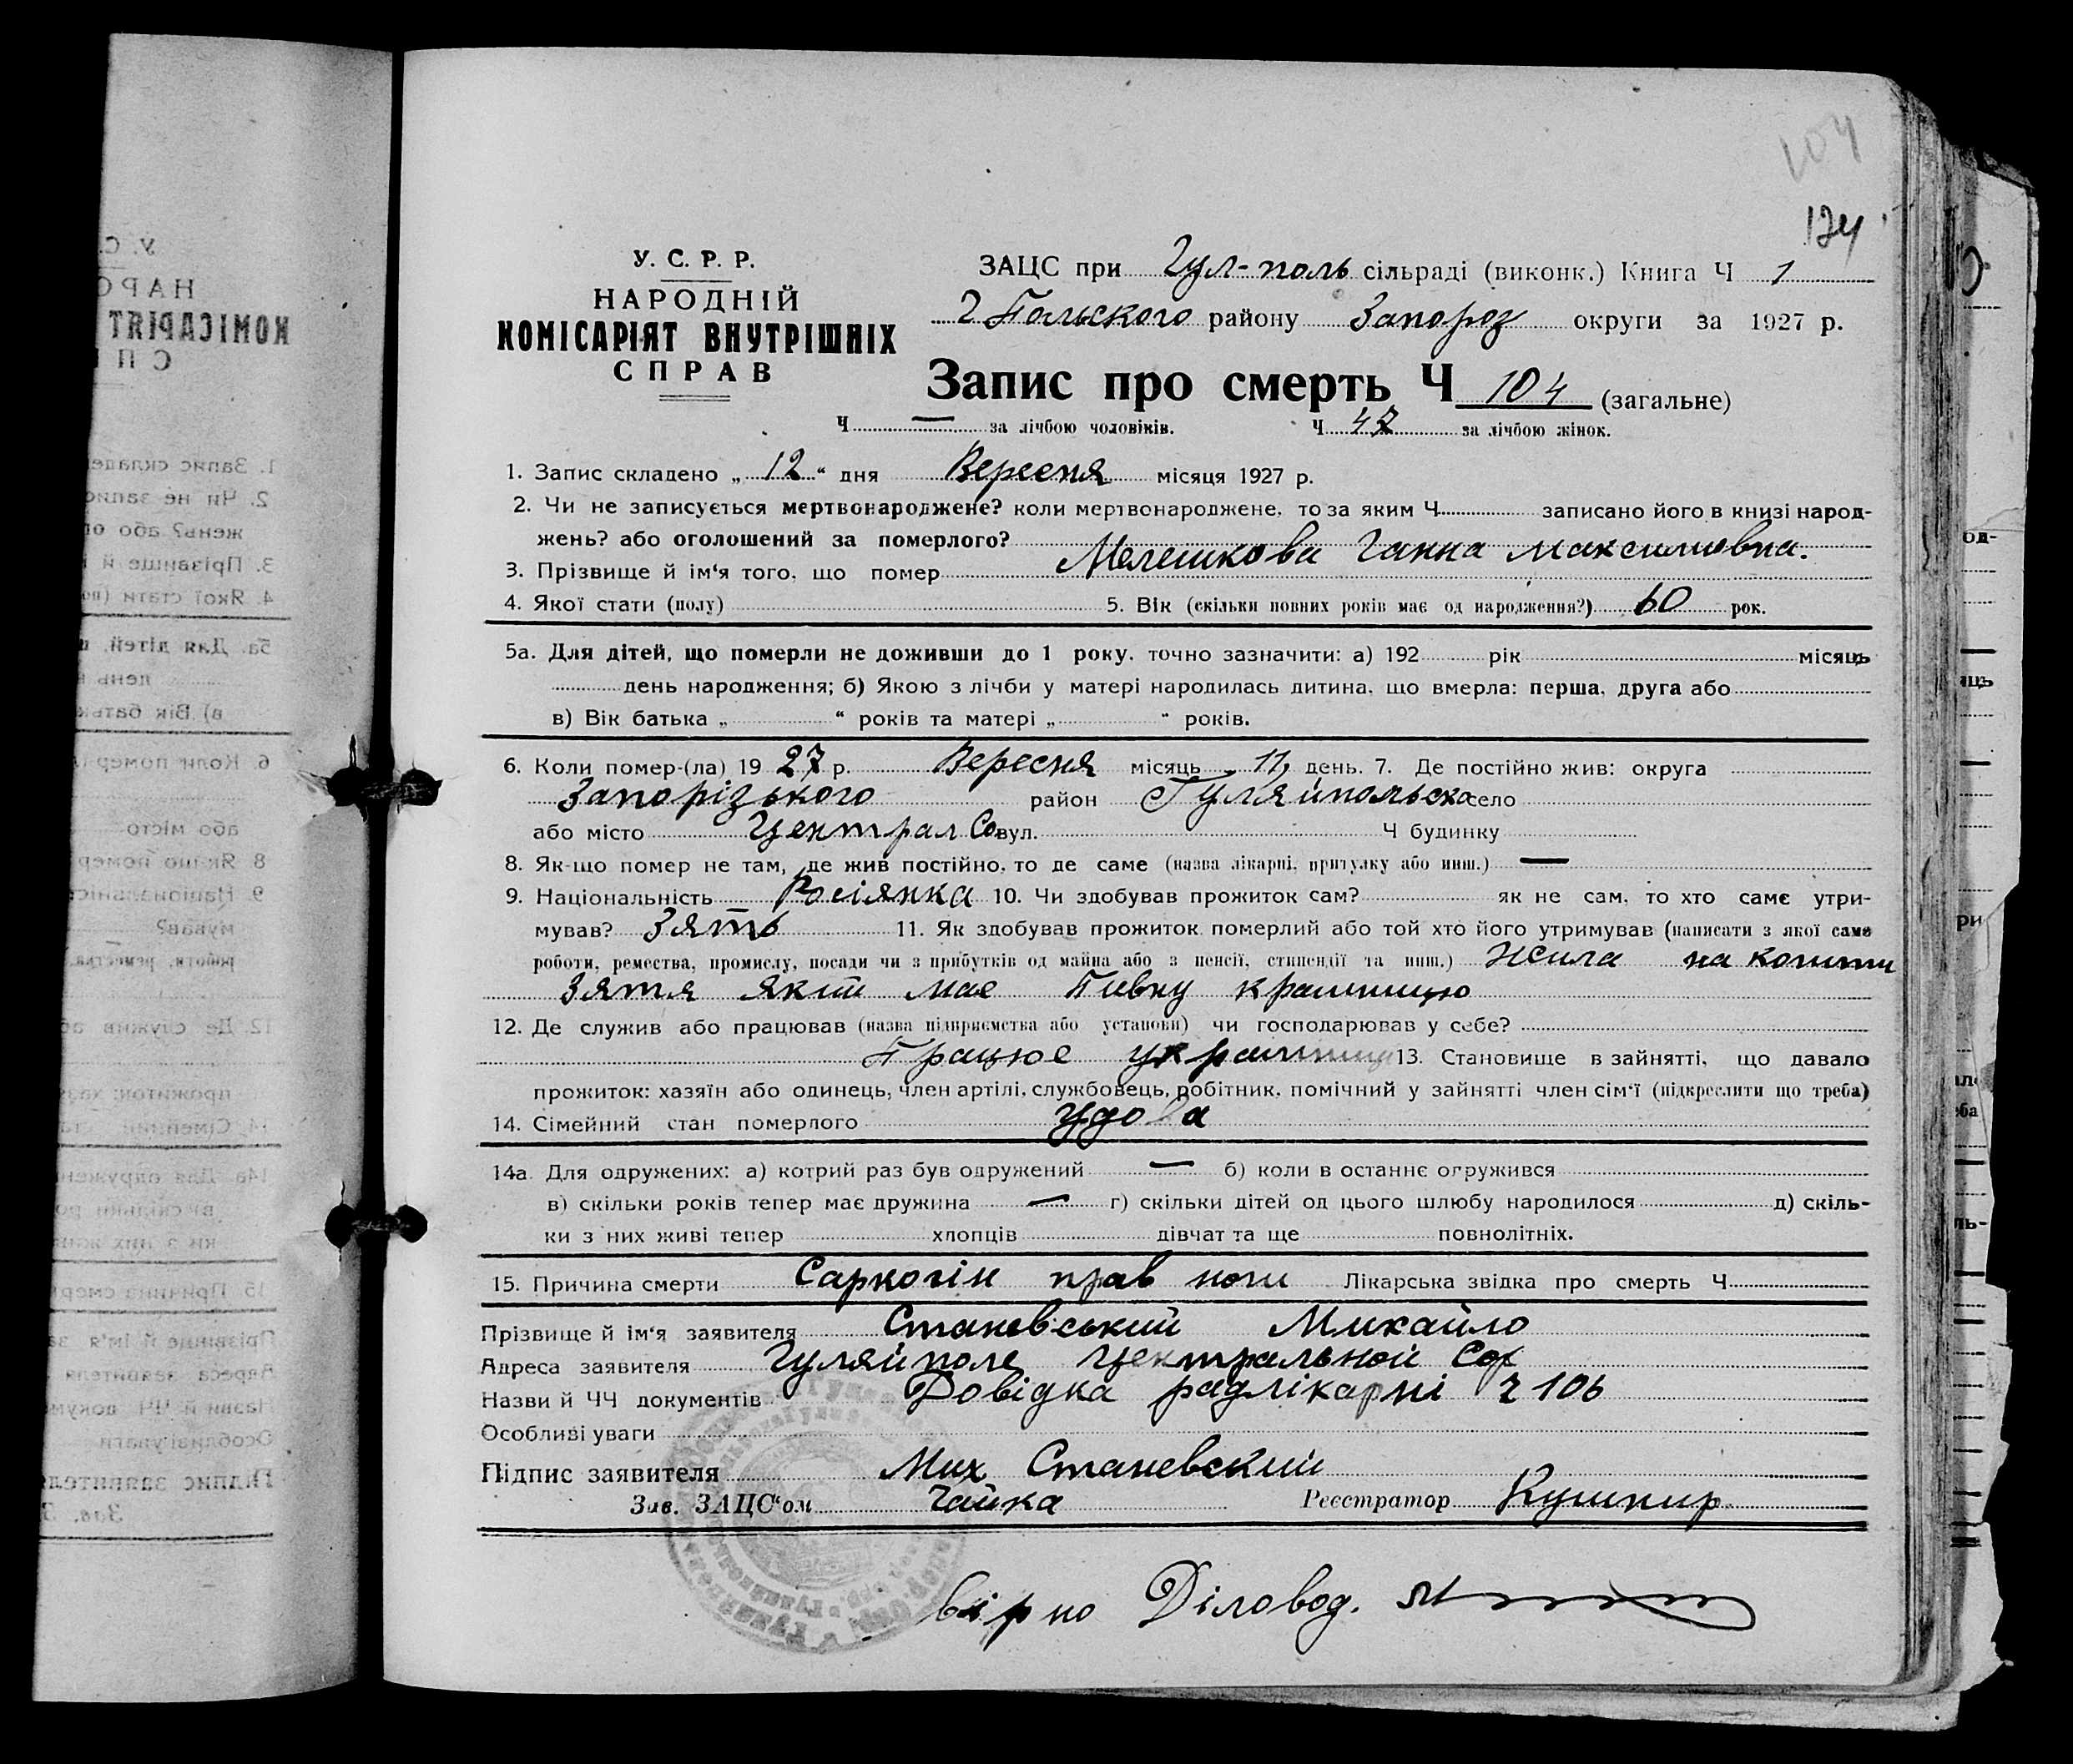 104
124
У. С. Р. Р.
НАРОДНІЙ
КОМІСАРІЯТ ВНУТРІШНІХ
СПРАВ
ЗАЦС при Гул-поль сільраді (виконк.) Книга Ч 1
Г Польского району Запороз округи за 1927 р.
Запис про смерть Ч 104 (загальне)
Ч — за лічбою чоловіків. Ч 47 за лічбою жінок.
1. Запис складено „ 12 “ дня Вересня місяця 1927 р.
2. Чи не записується мертвонароджене? коли мертвонароджене, то за яким Ч записано його в книзі народ-
жень? або оголошений за померлого?
3. Прізвище й ім‘я того, що помер Мелешкова Ганна Максимовна.
4. Якої стати (полу) 5. Вік (скільки повних років має од народження?) 60 рок.
5а. Для дітей, що померли не доживши до 1 року, точно зазначити: а) 192 рік місяць
день народження; б) Якою з лічби у матері народилась дитина, що вмерла: перша, друга або
в) Вік батька „ “ років та матері „ “ років.
6. Коли помер-(ла) 19 27 р. Вересня місяць 11, день. 7. Де постійно жив: округа
Запорізького район Гуляйпольско село
або місто Централ Со вул. Ч будинку
8. Як-що помер не там, де жив постійно, то де саме (назва лікарні, притулку або инш.) —
9. Національність Росіянка 10. Чи здобував прожиток сам? як не сам, то хто саме утри-
мував? Зять 11. Як здобував прожиток померлий або той хто його утримував (написати з якої саме
роботи, ремества, промислу, посади чи з прибутків од майна або з пенсії, стипендії та инш.) Жила на кошти
Зятя який має Пивну крамницю
12. Де служив або працював (назва підприємства або установи) чи господарював у себе?
Працює у крамниці 13. Становище в зайнятті, що давало
прожиток: хазяїн або одинець, член артілі, службовець, робітник, помічний у зайнятті член сім‘ї (підкреслити що треба)
14. Сімейний стан померлого удова
14а. Для одружених: а) котрий раз був одружений — б) коли в останнє одружився
в) скільки років тепер має дружина — г) скільки дітей од цього шлюбу народилося д) скіль-
ки з них живі тепер хлопців дівчат та ще повнолітніх.
15. Причина смерти прав ноги Лікарська звідка про смерть Ч
Прізвище й ім‘я заявителя Станевський Михайло
Адреса заявителя Гуляйполе Центральной Сот
Назви й ЧЧ документів Довідка радлікарні 2 106
Особливі уваги
Підпис заявителя Мих Станевский
Зав. ЗАЦС‘ом Чайка Реєстратор Кушнир
вірно Діловод.